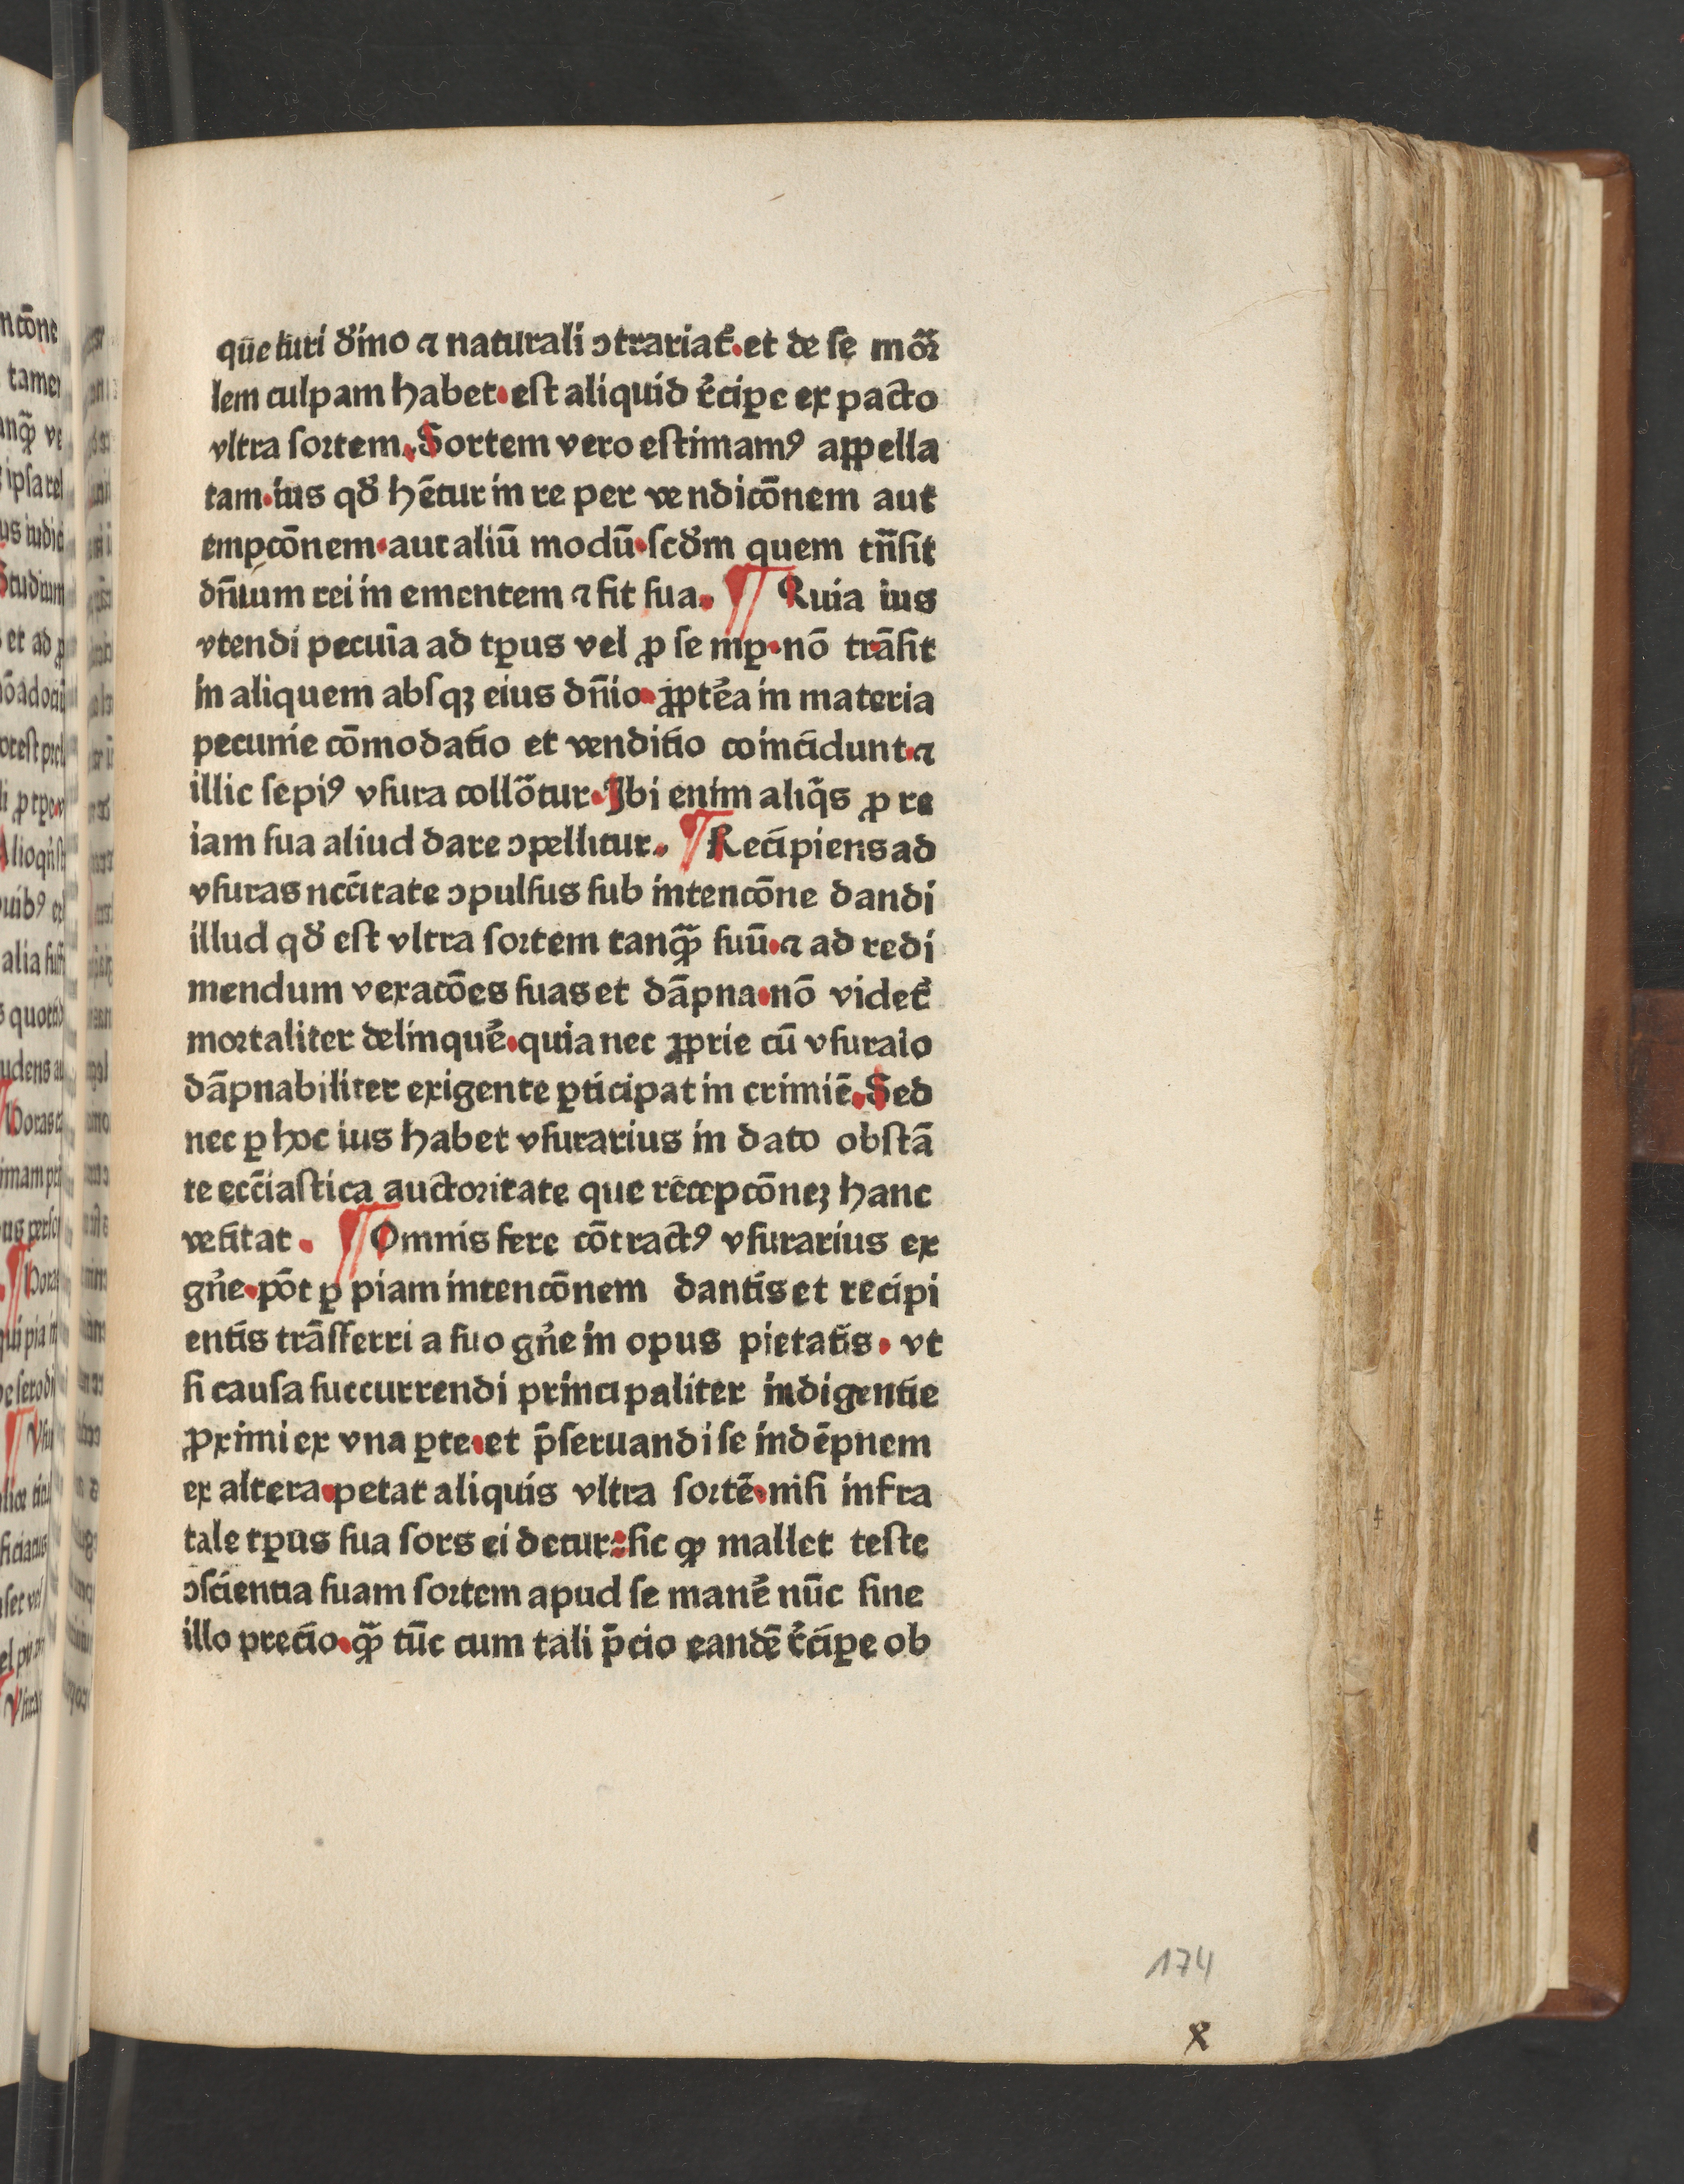 qūe iuri dīno ⁊ naturali ꝯtrariat᷑.et de se mōꝛ
lem culpam habet.est aliquid r̄cipe ex pacto
vltra soꝛtem.Sortem vero estimamꝰ appella
tam.ius qd̄ hētur in re per vendicōnem aut
empcōnem.aut aliū modū.scd̄m quem tn̄sit
dn̄ium rei in ementem ⁊ fit sua. ¶ Quia ius
vtendi pecuīa ad tꝑus vel ꝓ semꝑ.nō trāsit
in aliquem absqꝫ eius dn̄io.ꝓptēa in materia
pecunie cōmodatio et venditio coincidunt.⁊
illic sepiꝰ vsura collōtur.Ibi enim aliq̄s ꝓ re
iam sua aliud dare ꝯpellitur. ¶ Recipiens ad
vsuras nccītate ꝯpulsus sub intencōne dandi
illud qd̄ est vltra soꝛtem tanqꝫ̄ suū.⁊ ad redi
mendum vexacōes suas et dāpna.nō videt᷑
moꝛtaliter delinquē.quia nec ꝓprie cū vsuraio
dāpnabiliter exigente ꝑticipat in crimiē.Sed
nec ꝑ hoc ius habet vsurarius in dato obstā
te ecc̄iastica auctoꝛitate que rēcepcōneꝫ hanc
vetitat. ¶ Omnis fere cōtractꝰ vsurarius ex
gn̄e.pōt ꝑ piam intencōnem dantis et recipi
entis trāsferri a suo gn̄e in opus pietatis. vt
si causa succurrendi principaliter indigentie
ꝓximi ex vna ꝑte.et p̄seruandi se indēpnem
ex altera.petat aliquis vltra soꝛtē.nisi infra
tale tꝑus sua sors ei detur:sic ꝙ mallet teste
ꝯscientia suam soꝛtem apud se manē nūc sine
illo precio.qꝫ̄ tūc cum tali p̄cio eandē r̄ciꝑe ob
174
x